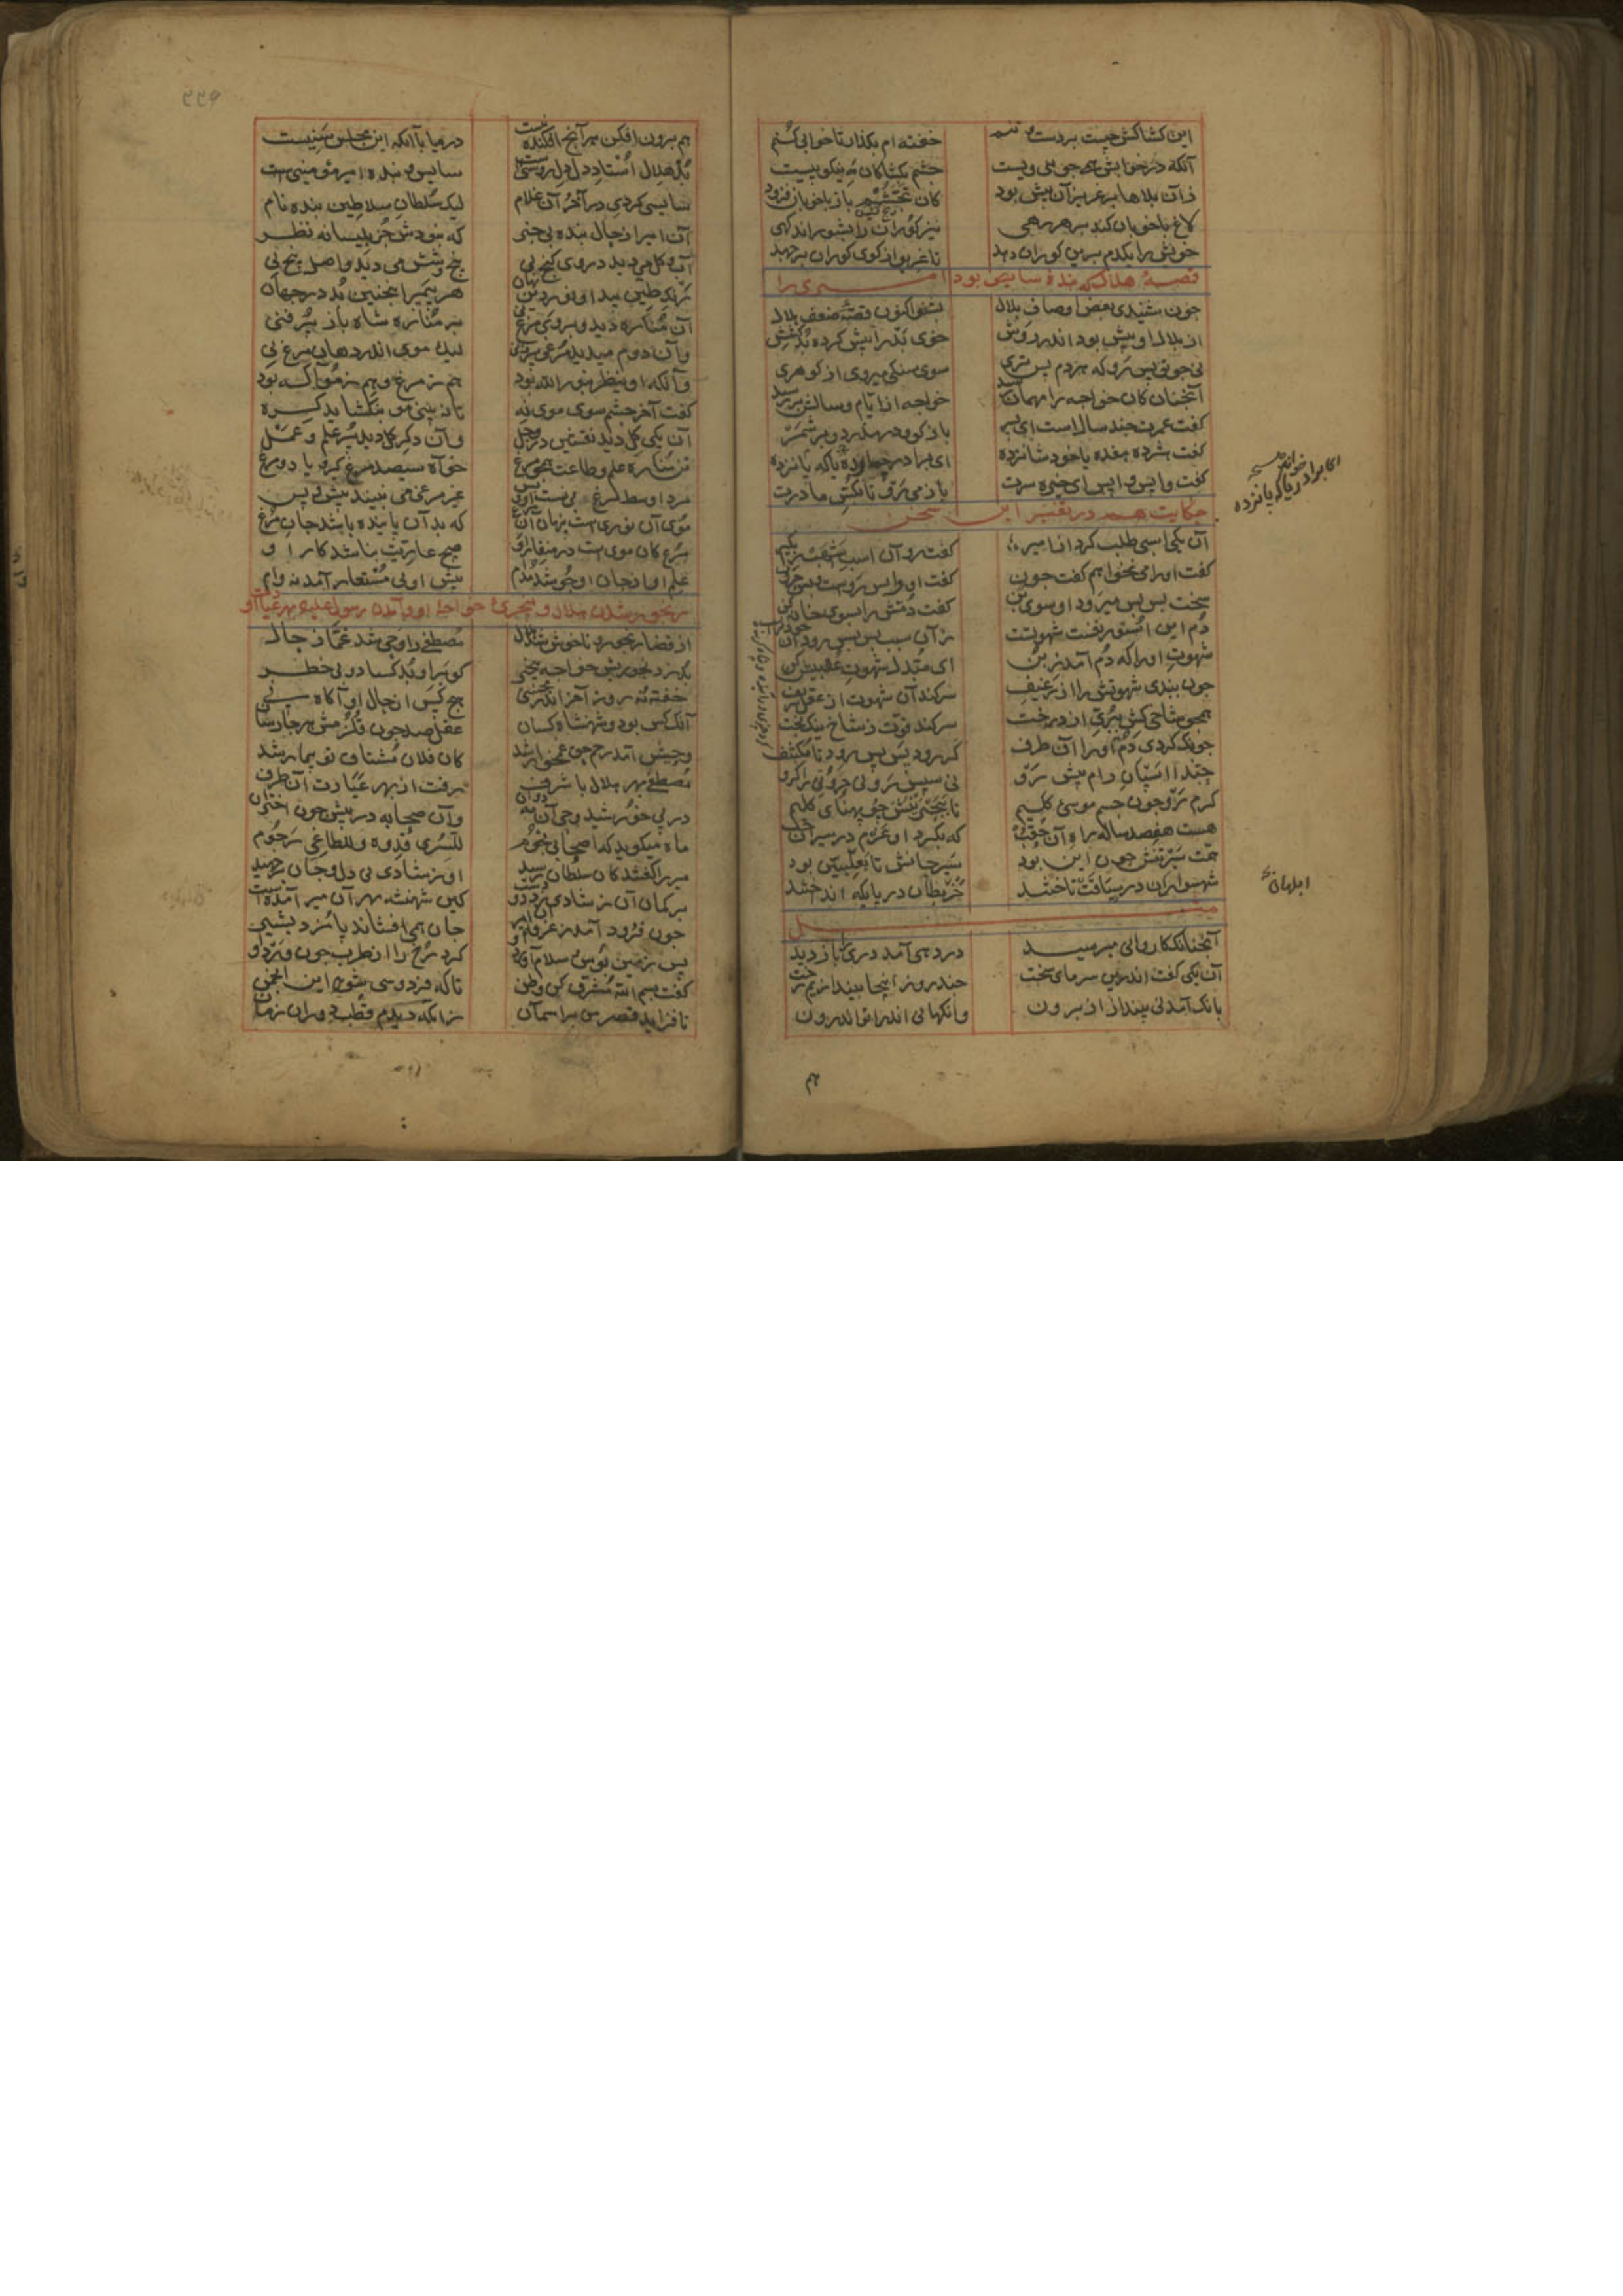 این کشاکش چیست بر دست و تنم خفته ام بکذار تا خوابی کنم
آنکه در خوابش همی جویی ویست چشم بکشا کان مه نیکو پیست
زان بلاها بر عزیزان بیش بود کان تجمش یار با خوبان فزود
لاغ با خوبان کند بر هر رهی نیز کوران را بشوراند کهی
خویش را یکدم برین کوران دهد تا غریو از کوی کوران بر جهد
قصهٔ هلال که بندهٔ سایس بود امیری را
چون شنیدی بعض اوصاف بلال بشنو اکنون قصهٔ ضعف هلال
از بلال او بیش بود اندر روش خوی بد را بیش کرده بد کشش
نی چو تو پس رو که هر دم پس تری سوی سنکی میروی از کوهری
آنچنان کان خواجه را مهمان رسید خواجه از ایام و سالش بر رسید
کفت عمرت چند سالست ای پسر باز کو و در مدزد و بر شمر
کفت هژده هفده یا خود شانزده ای برادر خوانده یا که پانزده
کفت واپس واپس ای خیره سرت باز می رو تا بکش مادرت
حکایت هم در تقریر این سخن
آن یکی اسبی طلب کرد از امیر کفت رو آن اسب اشهب را بکیر
کفت او را می نخواهم کفت چون کفت او واپس روست و بس حرون
سخت پس پس میرود او سوی بن کفت دمش را بسوی خانه کن
دم این استور نفست شهوتست زان سبب پس پس رود آن خود پرست
شهوت او را که دم آمد ز بن ای مبدل شهوت عقبیش کن
چون ببندی شهوتش را از رغیف سر کند آن شهوت از عقل شریف
همچو شاخی کش ببری از درخت سر کند قوت ز شاخ نیکبخت
چونک کردی دم او را آن طرف کر رود پس پس رود تا مکتنف
حبذا اسپان رام پیش رو نی سپس رو نی حرونی را کرو
کرم رو چون جسم موسی کلیم تا ببحرینش چو پهنای کلیم
هست هفصد ساله راه آن حقب که بکرد او عزم در سیران حب
همت سیر تنش چون این بود سیر جانش تا بعلیین بود
شهسواران در سباقت تاختند خربطان در پایکه انداختند
مثل
آنچنانک کاروانی میرسید در دهی آمد دری را باز دید
آن یکی کفت اندرین سرمای سخت چند روز اینجا بیندازیم رخت
بانک آمد نی بینداز از برون وانکهانی اندرآ تو اندرون
هم
ای برادر خوانده یا که پانزده
ابلهان
۲۲۶
هم برون افکن هر آنچ افکندنیست در میا با آنک این مجلس سنیست
بد هلال استاد دل جان روشنی سایس و بندهٔ امیر مؤمنی
سایسی کردی در آخر آن غلام لیک سلطان سلاطین بنده نام
آن امیر از حال بنده بی خبر که نبودش جز بلیسانه نظر
آب و کل می دید در وی کنج نی پنج و شش می دید و اصل پنج نی
رنک طین پیدا و نور دین نهان هر پیمبر اینچنین بد در جهان
آن مناره دید و بر وی مرغ نی بر مناره شاه باز پر فنی
وآن دوم میدید مرغی پرزنی لیک موی اندر دهان مرغ نی
وآنکه او ینظر بنور الله بود هم ز مرغ و هم ز مو آکه بود
کفت آخر چشم سوی موی نه تا نبینی مو بنکشاید کره
آن یکی کل دید نقشین در وحل وآن دکر کل دید پر علم و عمل
تن مناره علم و طاعت همچو مرغ خواه سیصد مرغ کیر و یا دو مرغ
مرد اوسط مرغ بینست او و بس غیر مرغی می نبیند پیش و پس
موی آن نوریست پنهان آن مرغ که بدآن پاینده باشد جان مرغ
مرغ کان مویست در منقار او هیچ عاریت نباشد کار او
علم او از جان او جوشد مدام پیش او نی مستعار آمد نه وام
رنجور شدن هلال و بیخبری خواجهٔ او و آمدن رسول علیه بهر عیادت او
از قضا رنجور و ناخوش شد هلال مصطفی را وحی شد غماز حال
بد ز رنجوریش خواجه بیخبر کو بر او بد کساد و بی خطر
خفته نه روز آخر اندر محسنی هیچ کس از حال او آکاه نی
آنک کس بود و شهنشاه کسان عقل صد چون قلزمش هر جا رسان
وحیش آمد رحم حق غمخوار شد کان فلان مشتاق تو بیمار شد
مصطفی بهر هلال با شرف رفت از بهر عیادت آن طرف
در پی خورشید وحی آن مه دوان وآن صحابه در پیش چون اختران
ماه میکوید که اصحابی نجوم للسری قدوه و للطاغی رجوم
میر را کفتند کان سلطان رسید او ز شادی بی دل و جان بر جهید
بر کمان آن ز شادی زد دو دست کین شهنشه بهر آن میر آمدست
چون فرود آمد ز غرفه آن امیر جان همی افشاند پا مزد بشیر
پس زمین بوس و سلام آورد او کرد رخ را از طرب چون ورد او
کفت بسم الله مشرف کن وطن تا که فردوسی شود این انجمن
تا فزاید قصر من بر آسمان زانکه دیدم قطب دوران زمان